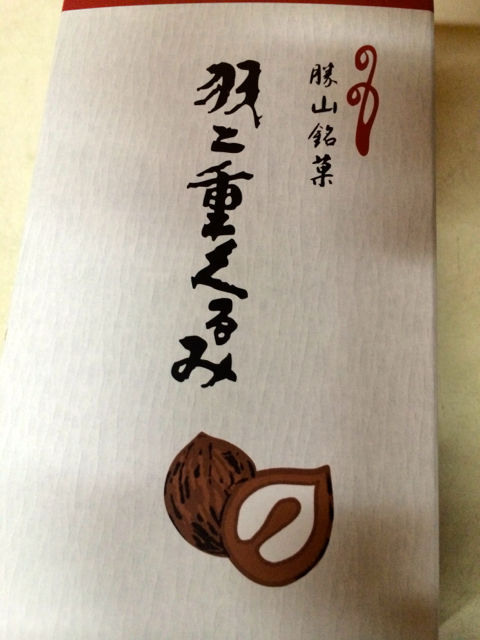 勝山銘菓
羽二重くるみ